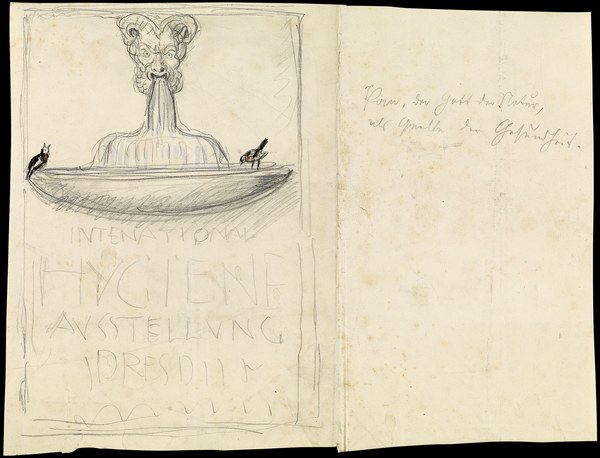 INTENATIONAL
HYGIENE
AVSSTELLVNG
DRESDEN
Pan, der Gott der Natur,
als Quelle der Gesundheit.